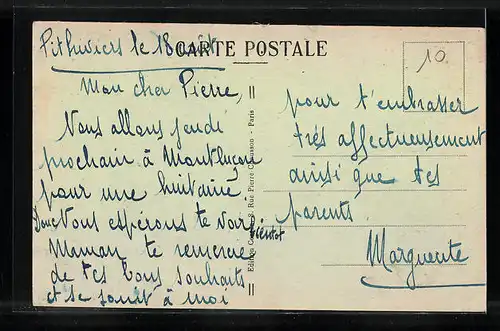 Pithiviers le 18 août
CARTE POSTALE
10
Mon cher Pierre,
Nous allons jeudi
prochain à Montluçon
pour une huitaine
Donc Nous espérons te voir
bientôt
Maman te remercie
de tes bons souhaits
et se joint à moi
pour t'embrasser
très affectueusement
ainsi que tes
parents.
Marguerite
Rue Pierre
Paris